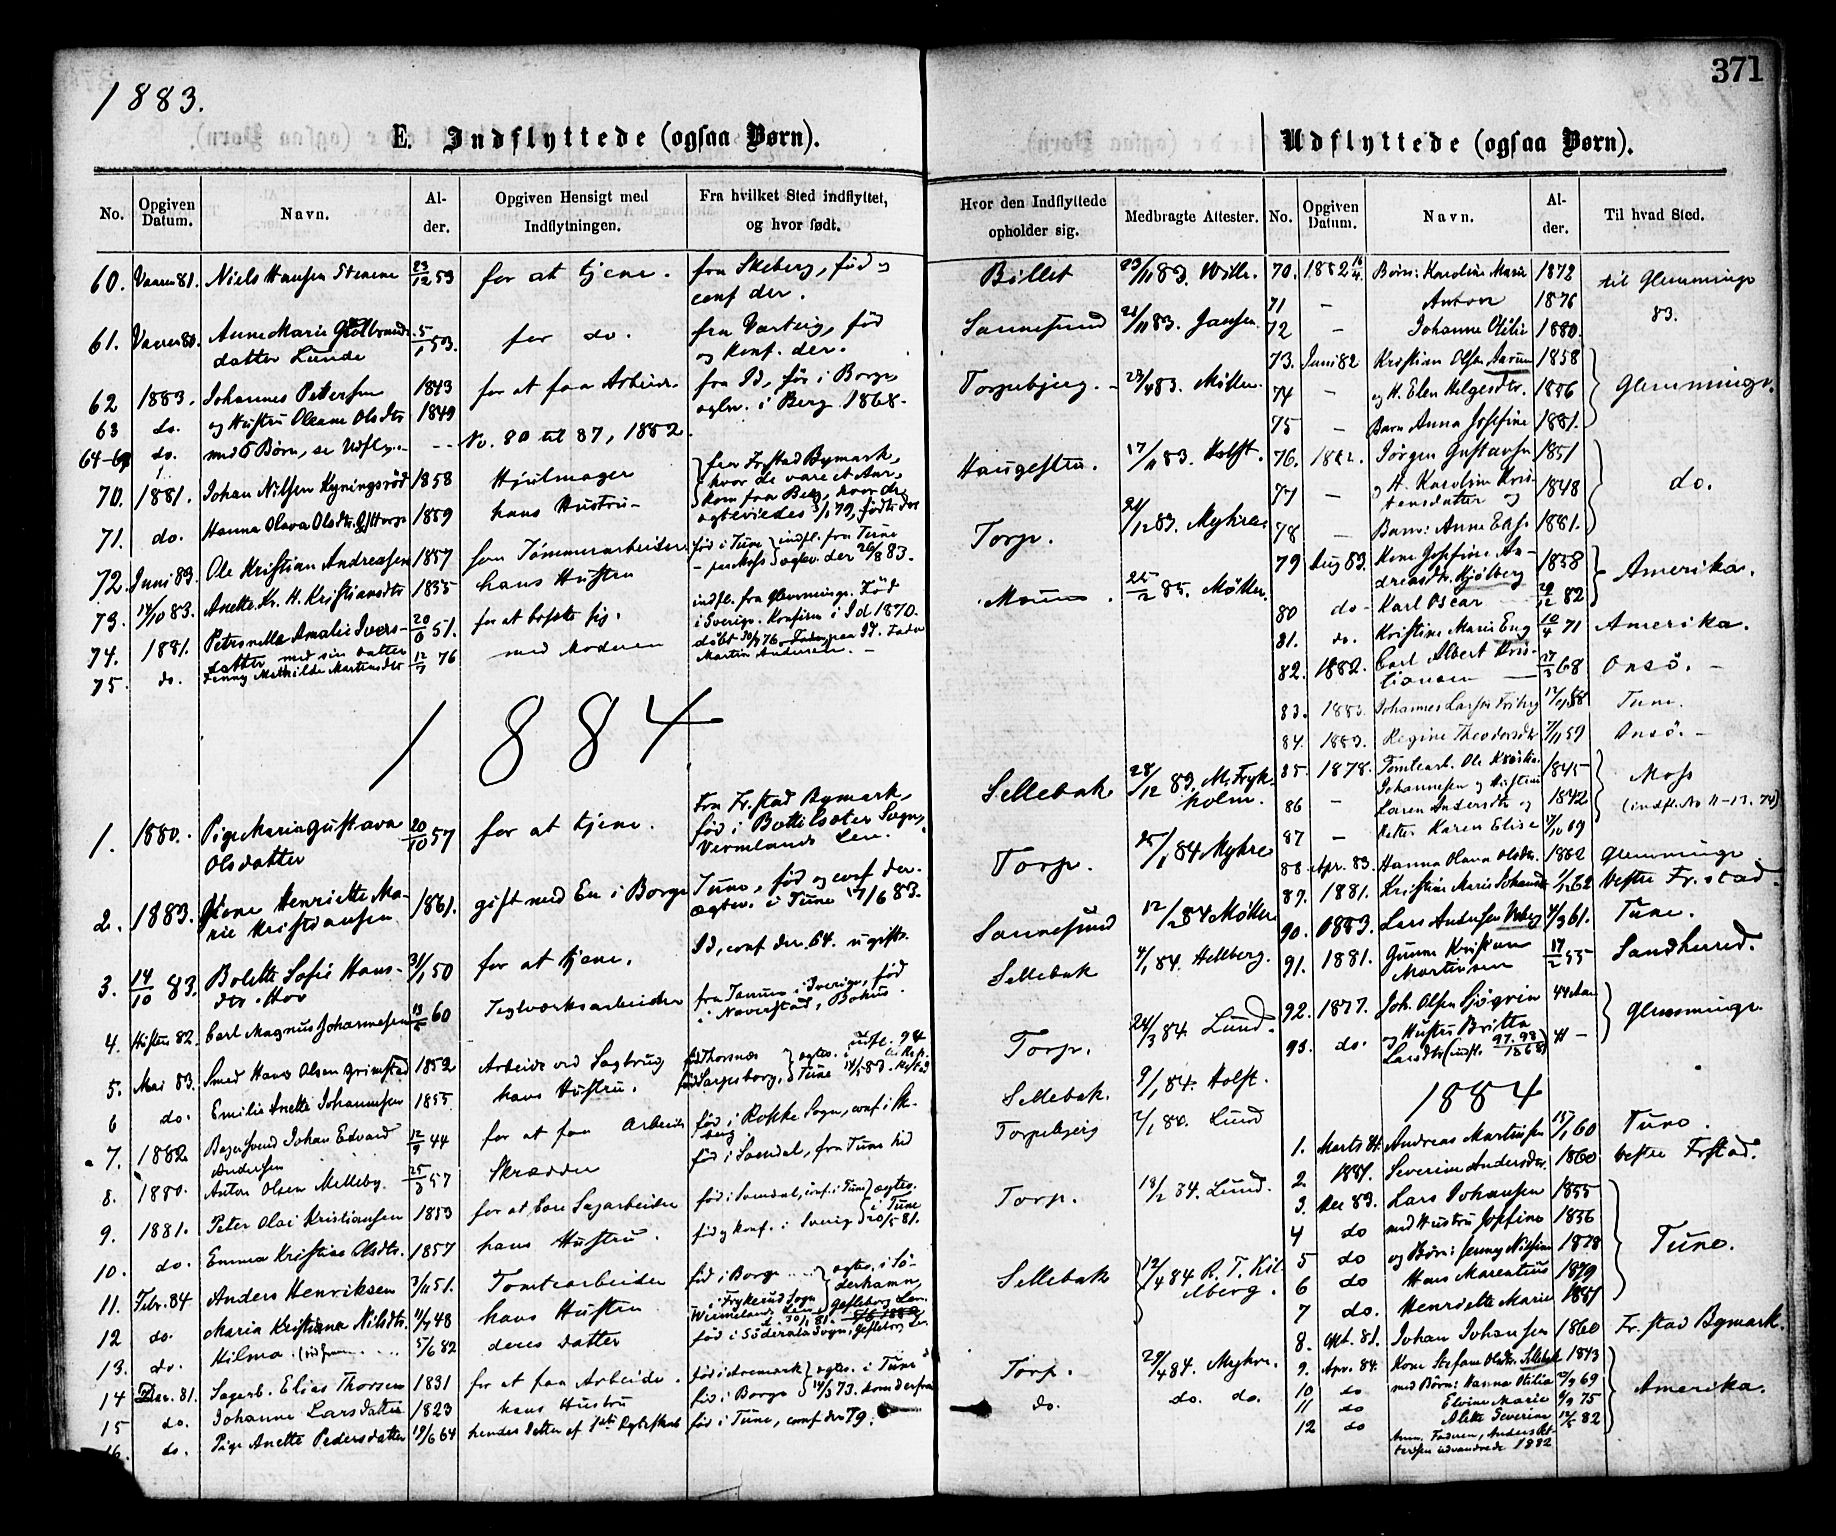 1883.
371
E. Indflyttede (ogsaa Børn).
Udflyttede (ogsaa Børn).
No. Opgiven Datum. Navn. Alder. Opgiven Hensigt med Indflytningen. Fra hvilket Sted indflyttet, og hvor født.
Hvor den Indflyttede opholder sig. Medbragte Attester. No. Opgiven Datum. Navn. Alder. Til hvad Sted.
60. Vaaren 81. Niels Hansen Stenene 23/12 53 for at tjene. fra Skeberg, fød og
conf der.
61. Vaaren 80. Anne Marie Gulbrands- 5/1 53. for do. fra Varteig, fød
datter Lunde og konf. der.
62 1883. Johannes Petersen 1843 for at faa Arbeide. fra Id, før i Borge,
63 do. og Hustru Oleane Olsdtr 1849 i Berg 1868.
64-69 do. med 5 Børn, se Udfl. No. 80 til 87, 1882.
70. 1881. Johan Nilsen Kyningsrød 1858 Hjulmager fra Frstad Bymark,
hvor de vare et Aar,
kom fra Berg, hvor de
71. do. Hanna Olava Olsdtr 1859 hans Hustru
72. Juni 83. Ole Kristian Andreassen 1857 som Tømmerarbeider fød i Tune indfl. fra Tune
73. 14/10 83. Anette Kr. H. Kristiansdtr 1855 hans Hustru 26/8 83.
74. 1881. Petronella Amalie Ivers- 20/6 51. for at bosætte sig. indfl. fra Glemminge. Fød
datter med sin datter i Sverige. Konfirm. i Id 1870.
75. do. Jenny Mathilde Martinsdtr 12/7 76 med Moderen
Martin Andersen.
1884
1. 1880. Pige Maria Gustava 20/10 57 for at tjene. Fra Fr.stad Bymark,
Olsdatter fød i Bottilsæter Sogn,
Vermlands Len.
2. 1883. Henriette Ma- 1861. gift med En i Borge Tune, fød og conf der.
rie Kristiansen ægtev. i Tune 17/6 83.
3. 14/10 83. Bolette Sofie Hans- 31/1 50 for at tjene. Id, conf der. 64. ugift.
dtr. Hov
4. Høsten 82. Carl Magnus Johannesen 60 Teglværksarbeider fra Tanum i Sverige, fød
i Naverstad, Bohus.
5. Mai 83. Smed Hans Olsen Grimstad 1852 Arbeide ved Sagbrug fød Thorsnæs
6 do. Emilie Anette Johannesen 1855 hans Hustru. fød Sarpsborg, Tune
7. 1882 Bagersvend Johan Edvard 12/9 44 for at faa Arbeide fød i Rokke Sogn, conf i Sk-
Andersen berg
8. 1880. Anton Olsen Melleby. 25/3 57 Skrædder fød i Soendal, fra Tune hid
9. 1881. Peter Olai Kristiansen 1853 for at være Sagarbeider fød i Soendal, conf. i Tune ægtev.
i Tune
10. do. Emma Kristine Olsdtr. 1857 hans Hustru. fød og konf. i Sverig 20/5 81.
11. Febr. 84 Anders Henriksen 3/11 51. Tomtearbeider fød i Borge ægtev. i Sö-
derhamn,
12 do. Maria Kristiana Nilsdtr. 11/7 48 hans Hustru i Frykerud Sogn Gefleborg Len.
13. do. Hilma 5/6 82 deres datter fød i Söderala Sogn, Gefleborg Len
14 81. Sagarb. Elias Thorsen 1831 for at faa Arbeide. fød i Aremark ægtev. i Tune
15 do. Johanne Larsdatter 1823 hans Hustru fød i Borge 14/3 73.
do. Pige Anette Pedersdatter 19/6 64 hendes datter af 1ste Egteskab fød i Tune, conf der 79.
Bøllet 23/11 83. Wille.
Sannesund 21/11 83. Jansen
Torpebjerg. 23/4 83. Møller.
Haugesten. 17/11 83. Holst.
Torp. 21/12 83. Myhre
Moum. 25/2 85. Møller.
Sellebak 28/12 83. M. Fryk-
holm.
Torp. 25/1 84 Myhre
Sannesund 12/2 84 Møller
Sellebak 4/1 84. Hellberg.
Torp. 24/3 84. Lund.
Sellebak. 9/1 84. Holst.
Torpebjerg 2/1 80. Lund
Torp. 18/2 84. Lund.
Sellebak 12/4 84 R. T. Kil-
berg.
Torp. 29/4 84. Myhre.
do. do. do.
70. 1882 16/4. Børn: Karoline Marie 1872 til Glemminge
71 – Anton 1876 83.
72 – Johanne Otilie 1880.
73. Juni 82 Kristian Olsen Aarum 1858
74 – og H. Elen Helgesdtr. 1856 Glemminge.
75 – Barn Anna Josefine 1881.
76. 1882. Jørgen Gustavsen 1851
77 – og H. Karoline Kris-
tensdatter og 1848 do.
78 – Barn: Anne Elise 1881.
79 Aug 83. Kone Josefine An- 1858
dreasdtr. Kjølberg Amerika.
80 do Karl Oscar 29/12 82
81. do. Kristine Marie Eng 10/4 71 Amerika.
82. 1882. Carl Albert Kris- 17/3 68 Onsø.
tiansen
83. 1883. Johannes Larsen Friberg Tune.
84. 1883. Regine Theodorsdtr 7/11 59 Onsø.
85. 1878. Tomtearb. Ole Kristian 1845 Moss
Johannesen og Hustru
86 – Karen Andersdtr og 1842 (indfl. No 11-13. 74)
87 – datter Karen Elise 69
88 Apr. 83. Hanna Olava Olsdtr. 1862 Glemminge
87. 1881. Kristine Marie Johansdtr 62 Vestre Fr.stad.
90. 1883. Lars Andersen 4/9 61. Tune.
91. 1881. Gunne Kristian 17/2 55 Sandherred.
Martinsen
92. 1877. Joh. Olsen Sjögren 44 Aar
og Hustru Britta Glemminge
93. do. Larsdtr (indfl. 97.98/1868) 41 –
1884
1. Marts 84. Andreas Martinsen 15/1 60 Tune.
2 1881. Severine Andersdtr. 1860 Vestre Frstad.
3. Dec 83. Lars Johansen 1855
4 do med Hustru Josefine 1856
5 do og Børn: Jenny Nilsine 1878 Tune.
6 do Hans Marentius 1879
7 do. Henriette Marie 1881
8. Okt. 81. Johan Johansen 1860 Fr.stad Bymark.
9. Apr. 84. Kone Stefane Olsdtr. Sellebak 1843
10 do med Børn: Hanna Otilia 69
11 do Elvine Marie 6/9 75 Amerika.
12 do Alette Severine 82
Anm. Faderen, Anders Pet-
tersen udvandrede 1882